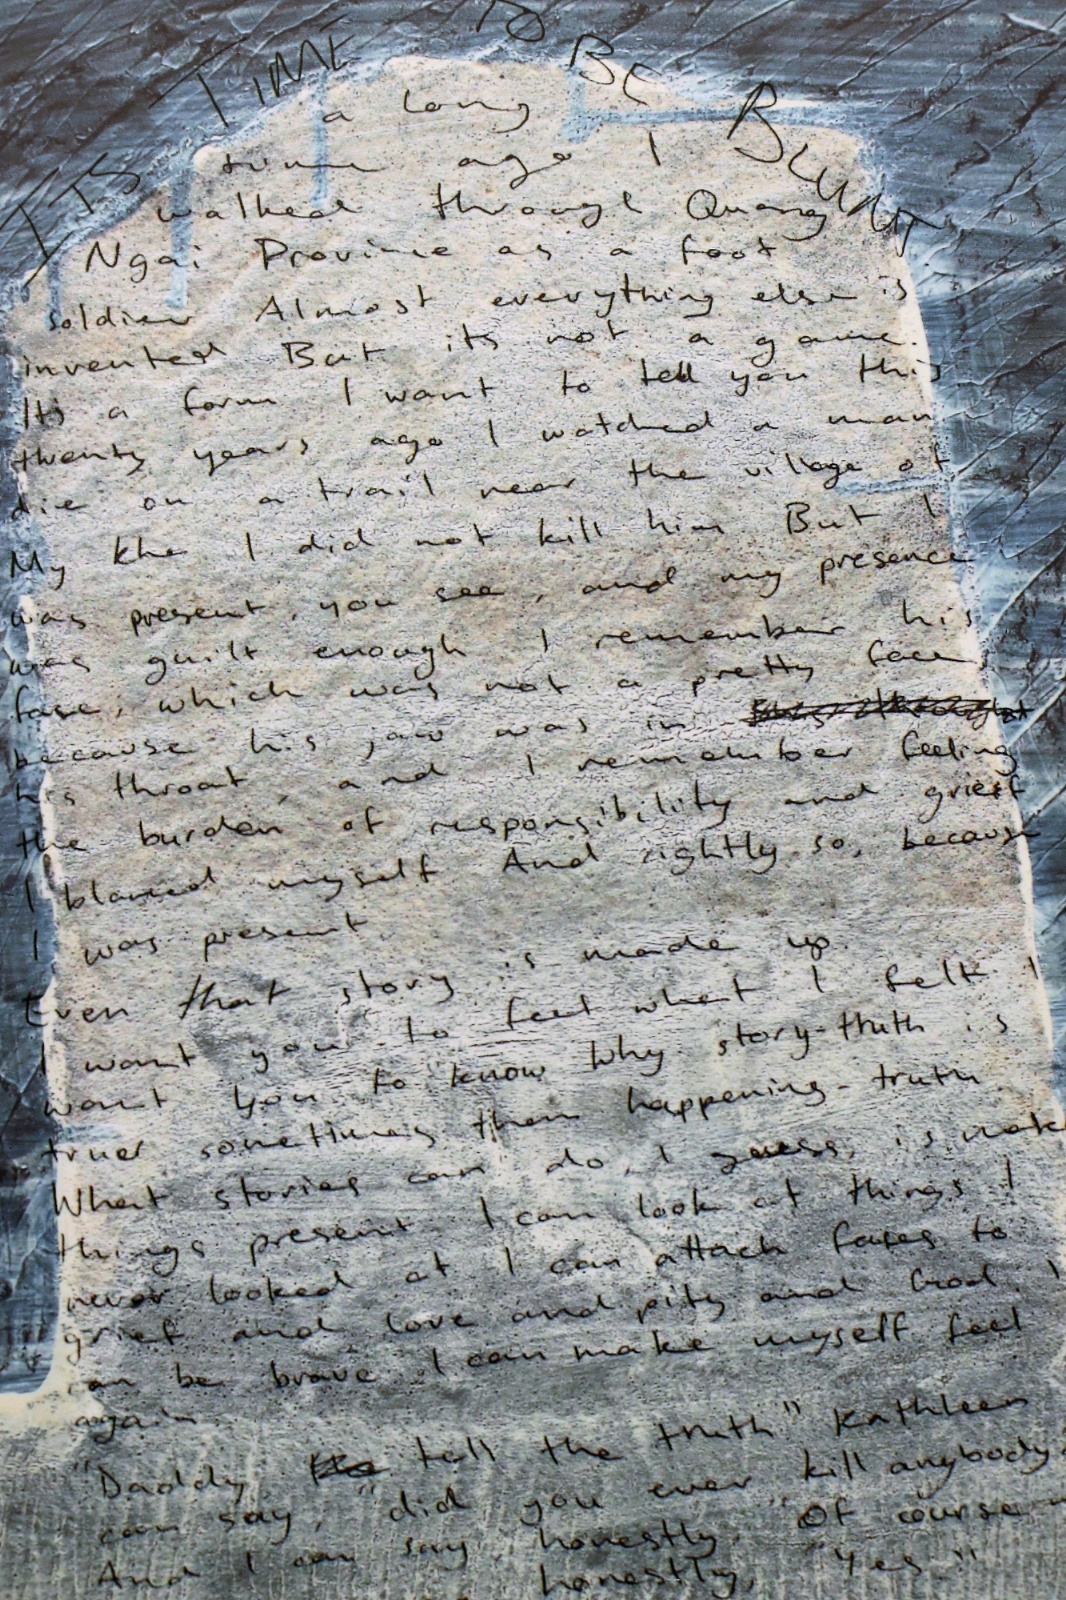 ITS TIME TO BE BLUNT
a long
time ago I
walked through Quang
Ngai Province as a foot
soldier Almost everything else is
invented But its not a game.
Its a form I want to tell you this
twenty years ago I watched a man
die on a trail near the village of
My khe I did not kill him But I
was present, you see, and my presence
was guilt enough I remember his
face, which was not a pretty face
because his jaw was in
his throat, and I remember feeling
the burden of responsibility and grief
I blamed myself And rightly so, because
I was present.
Even that story is made up.
I want you to feel what I felt I
want you to know why story-truth is
truer sometimes then happening-truth.
What stories can do, I guess, is make
things present I can look at things I
never looked at I can attach faces to
grief and love and pity and God. I
can be brave I can make myself feel
again.
"Daddy, tell the truth" Kathleen
can say, "did you ever kill anybody?
And I can say, honestly, "Of course
honestly, "Yes."